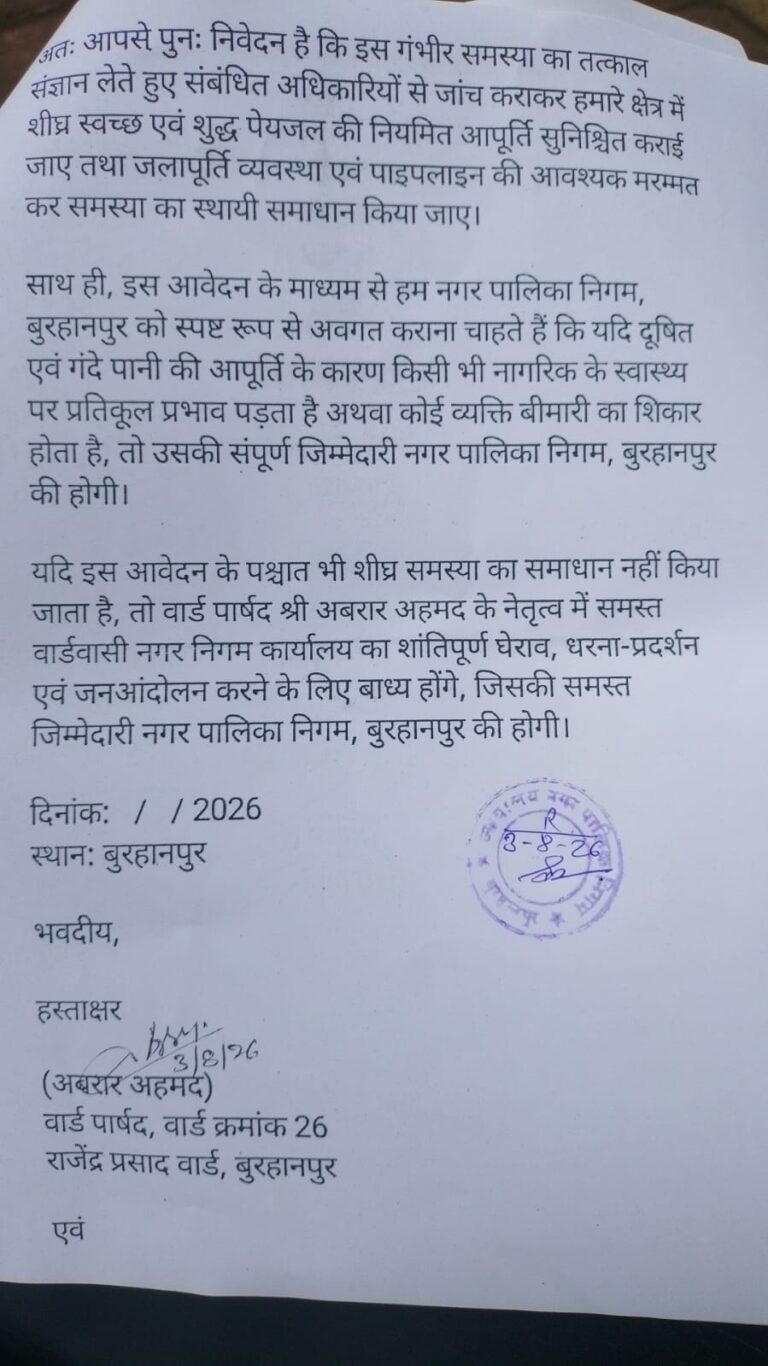 अतः आपसे पुनः निवेदन है कि इस गंभीर समस्या का तत्काल
संज्ञान लेते हुए संबंधित अधिकारियों से जांच कराकर हमारे क्षेत्र में
शीघ्र स्वच्छ एवं शुद्ध पेयजल की नियमित आपूर्ति सुनिश्चित कराई
जाए तथा जलापूर्ति व्यवस्था एवं पाइपलाइन की आवश्यक मरम्मत
कर समस्या का स्थायी समाधान किया जाए।
साथ ही, इस आवेदन के माध्यम से हम नगर पालिका निगम,
बुरहानपुर को स्पष्ट रूप से अवगत कराना चाहते हैं कि यदि दूषित
एवं गंदे पानी की आपूर्ति के कारण किसी भी नागरिक के स्वास्थ्य
पर प्रतिकूल प्रभाव पड़ता है अथवा कोई व्यक्ति बीमारी का शिकार
होता है, तो उसकी संपूर्ण जिम्मेदारी नगर पालिका निगम, बुरहानपुर
की होगी।
यदि इस आवेदन के पश्चात भी शीघ्र समस्या का समाधान नहीं किया
जाता है, तो वार्ड पार्षद श्री अबरार अहमद के नेतृत्व में समस्त
वार्डवासी नगर निगम कार्यालय का शांतिपूर्ण घेराव, धरना-प्रदर्शन
एवं जनआंदोलन करने के लिए बाध्य होंगे, जिसकी समस्त
जिम्मेदारी नगर पालिका निगम, बुरहानपुर की होगी।
दिनांक: / / 2026
स्थान: बुरहानपुर
R
3-8-26
भवदीय,
हस्ताक्षर
3/8/26
(अबरार अहमद)
वार्ड पार्षद, वार्ड क्रमांक 26
राजेंद्र प्रसाद वार्ड, बुरहानपुर
एवं